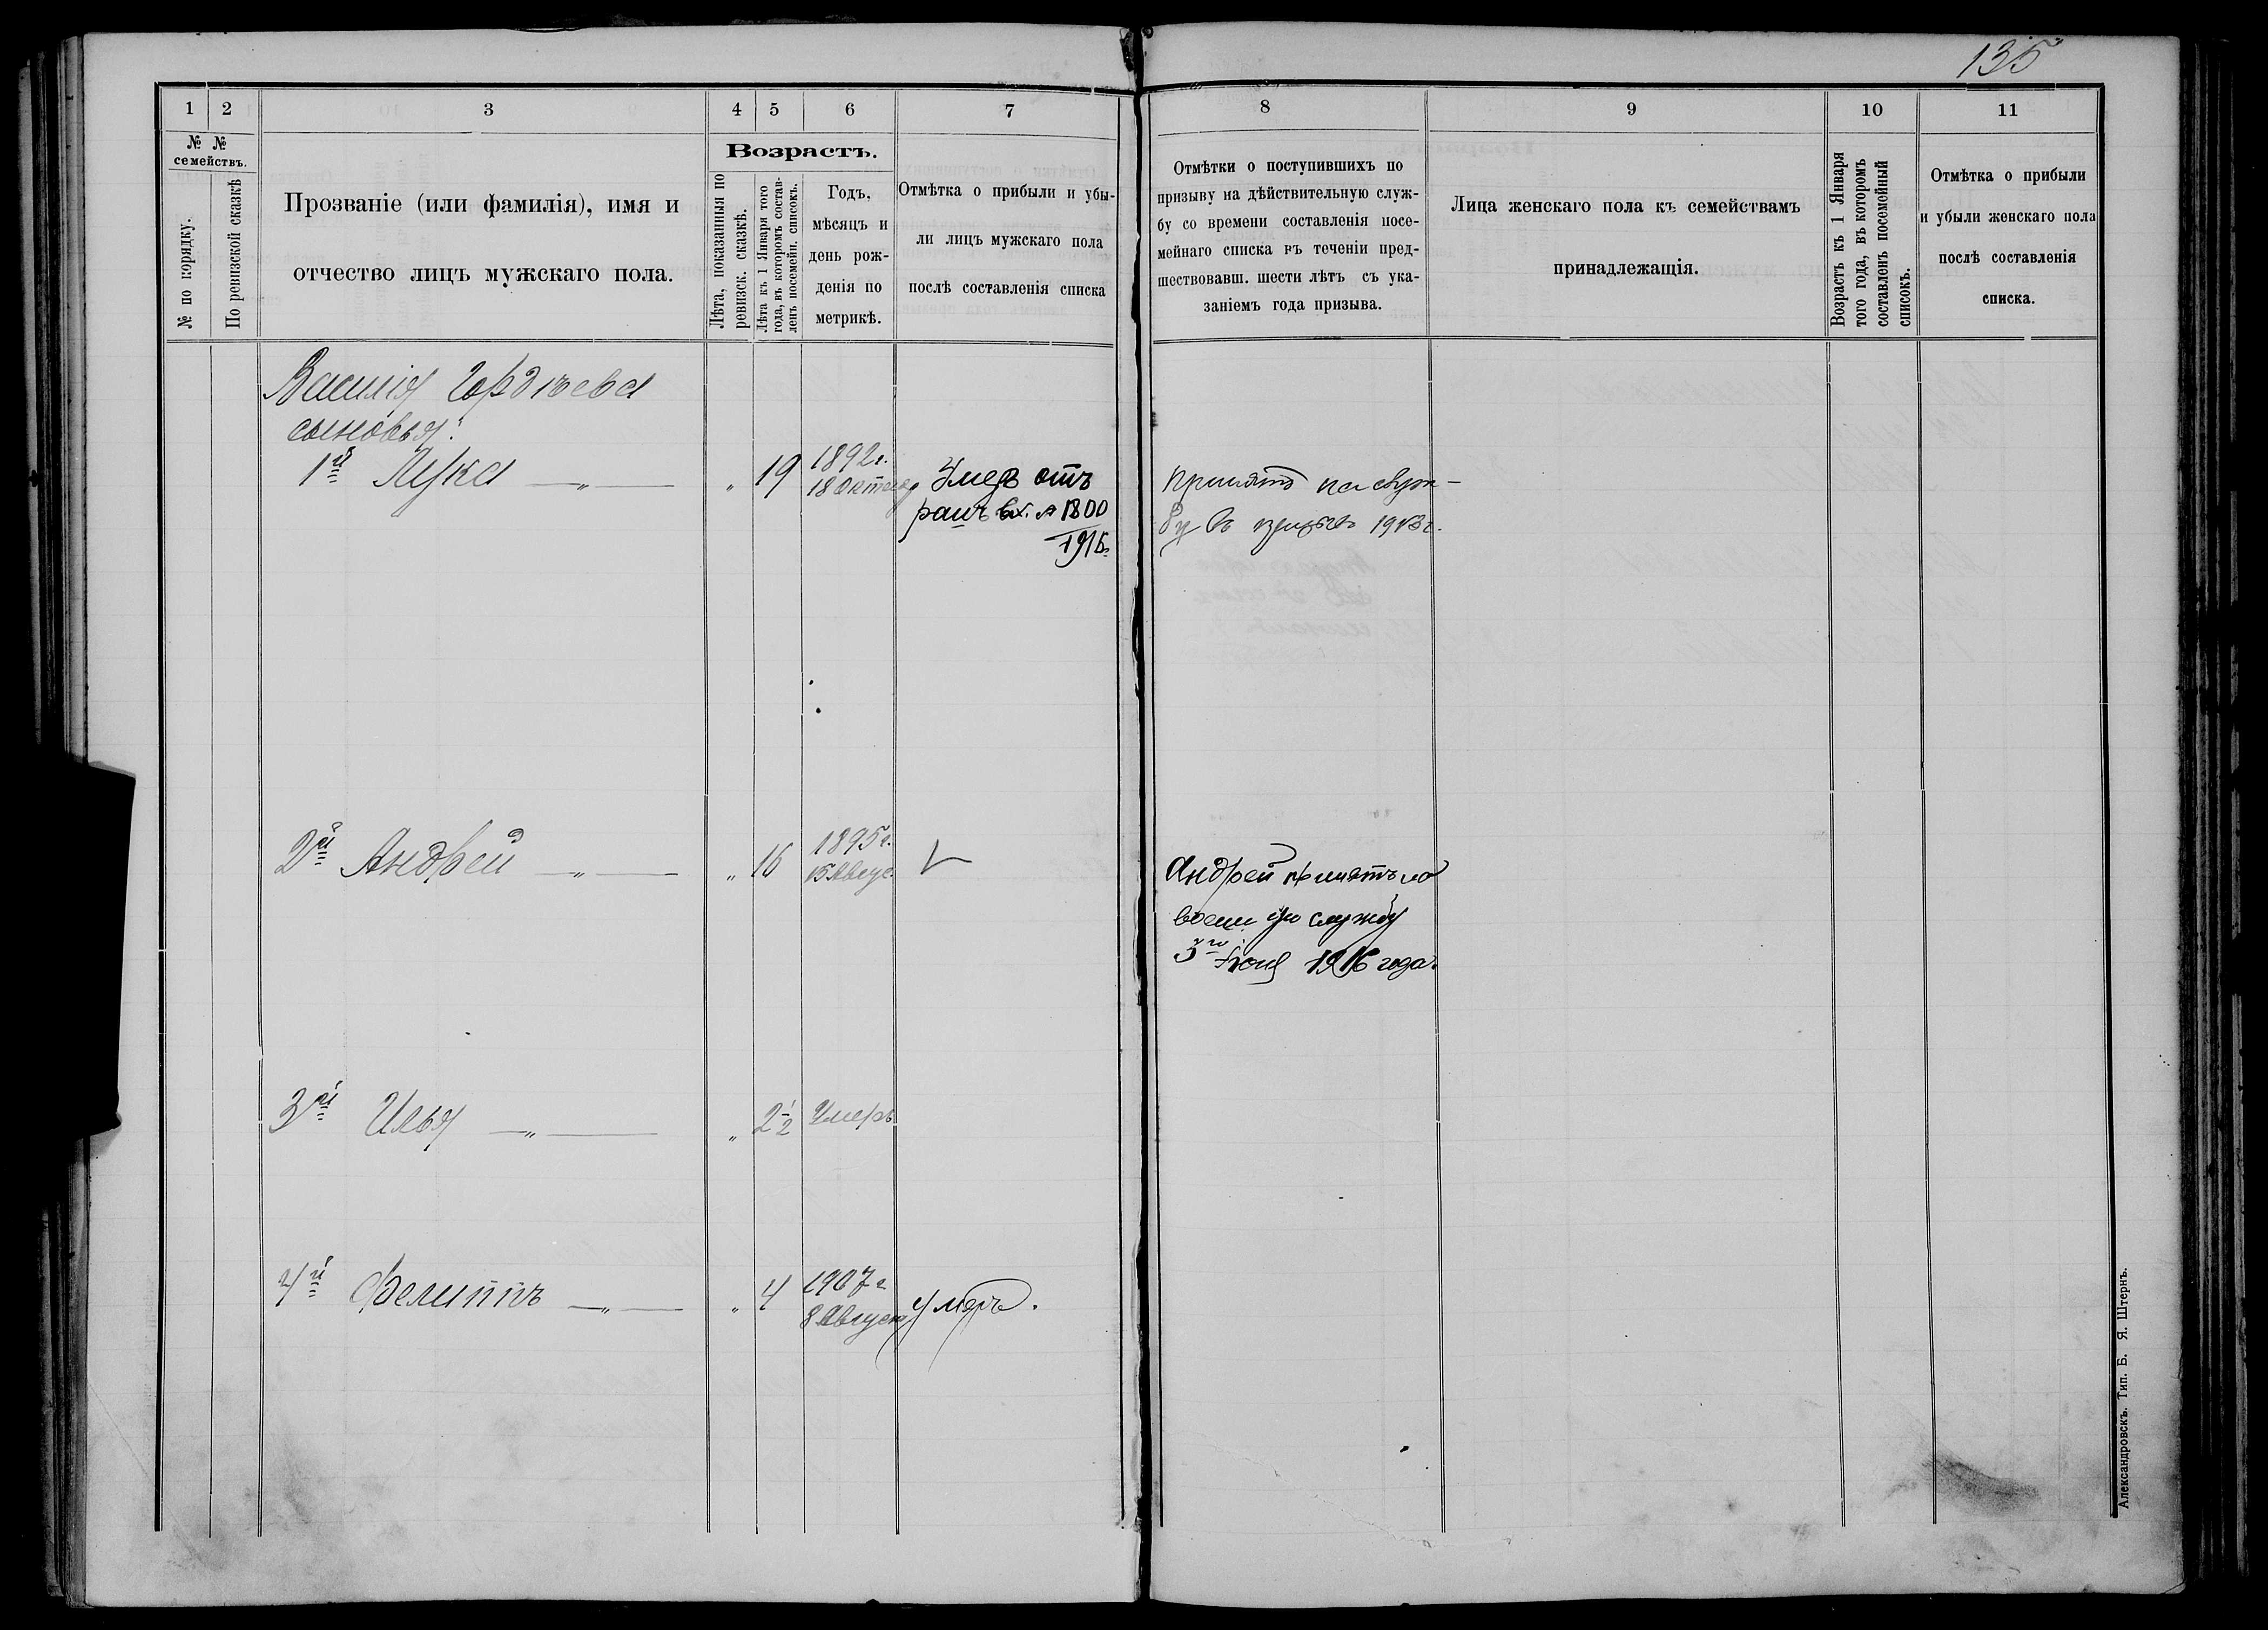 135
1 2 3 4 5 6 7 8 9 10 11
№ № семействъ.
№ по порядку.
По ревизской сказкѣ
Прозваніе (или фамилія), имя и
отчество лицъ мужскаго пола.
Возрастъ.
Лѣта, показанныя по
ревизск. сказкѣ.
Лѣта къ 1 Января того
года, въ которомъ состав-
ленъ посемейн. списокъ.
Годъ,
мѣсяцъ и
день рож-
денія по
метрикѣ.
Отмѣтка о прибыли и убы-
ли лицъ мужскаго пола
послѣ составленія списка
Отмѣтки о поступившихъ по
призыву на дѣйствительную служ-
бу со времени составленія посе-
мейнаго списка въ теченіи пред-
шествовавш. шести лѣтъ съ ука-
заніемъ года призыва.
Лица женскаго пола къ семействамъ
принадлежащія.
Возрастъ къ 1 Января
того года, въ которомъ
составленъ посемейный
списокъ.
Отмѣтка о прибыли
и убыли женскаго пола
послѣ составленія
списка.
Василія Гордѣева
сыновья:
1й Лука —„— „ 19 1892г.
18 Октября
Умеръ отъ
ранъ вх. № 1800
1915г.
Принятъ на служ-
бу въ призывъ 1913г.
2й Андрей —„— „ 16 1895г.
15 Авгус.
Андрей принятъ на
военную службу
3го Іюня 1916 года.
3й Илья —„— „ 2½ Умеръ
4й Фелиппъ —„— „ 4 1907г
8 Августа умеръ.
Александровскъ. Тип. Б. Я. Штернъ.